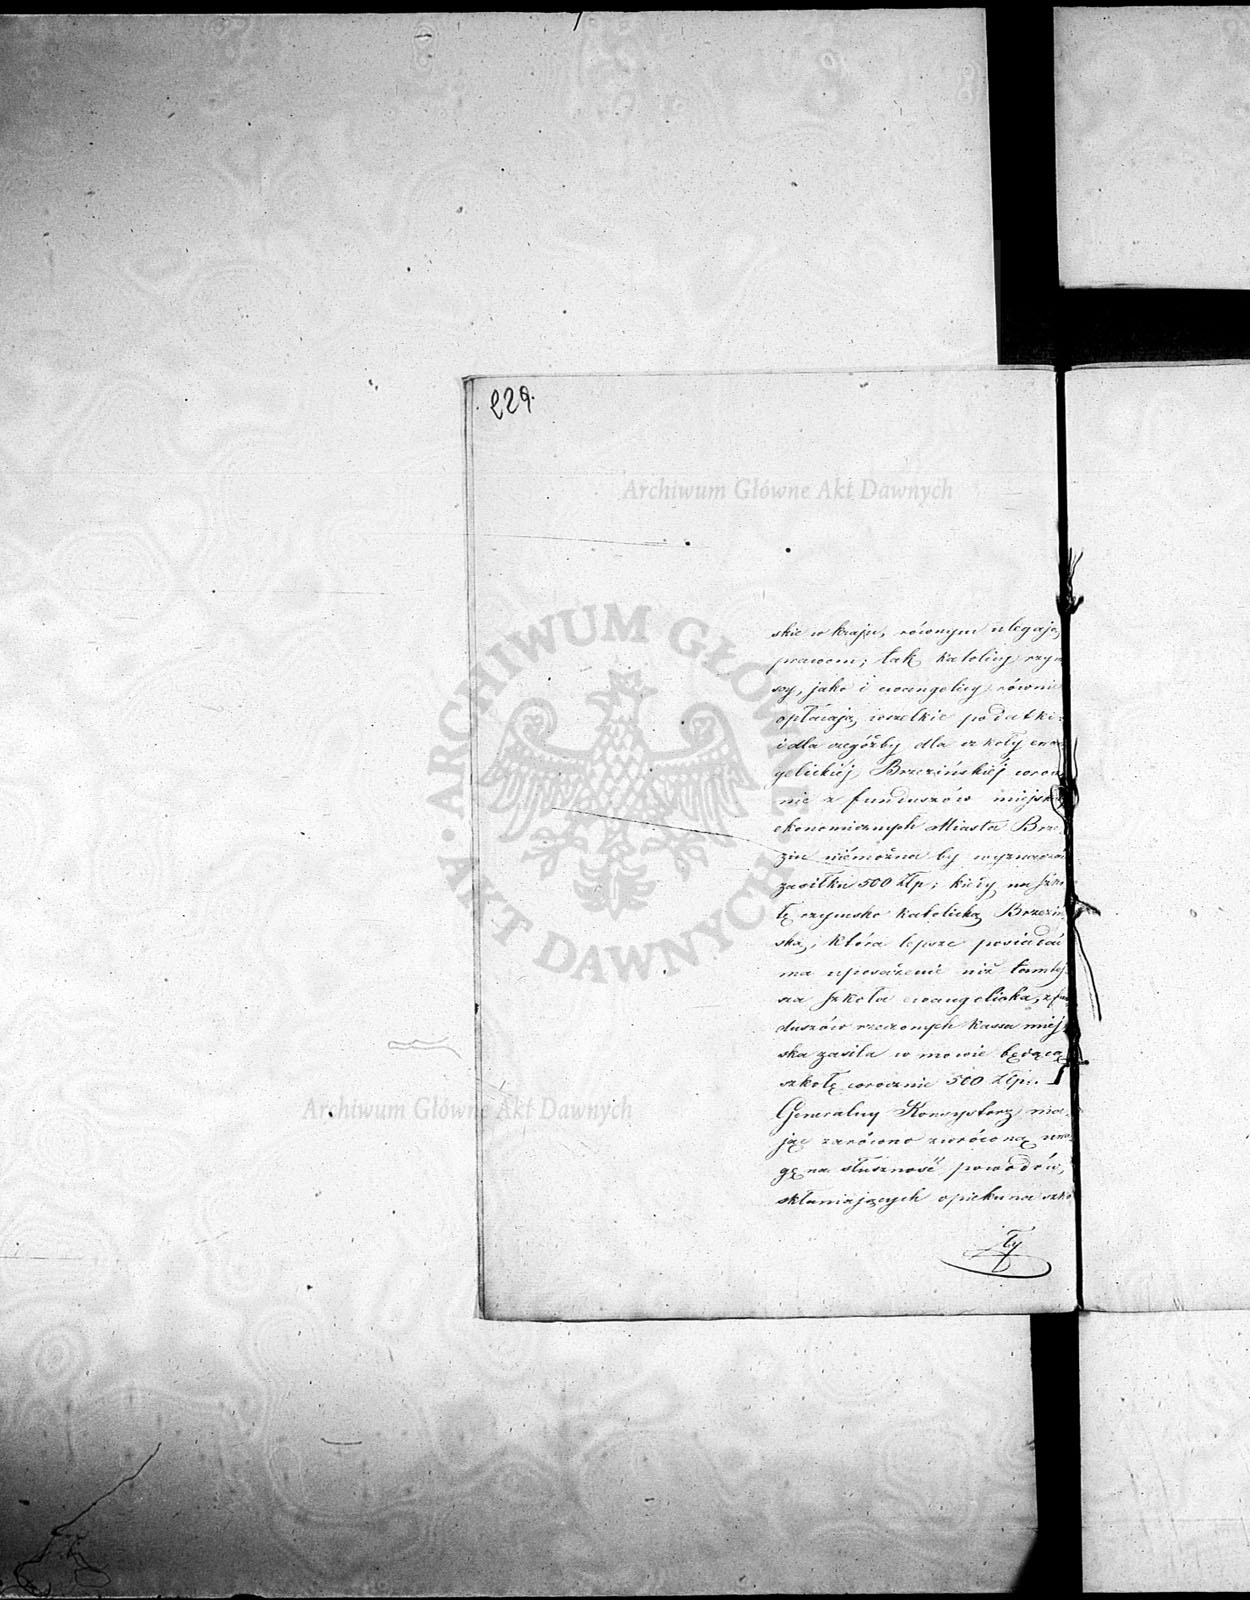 229.
Archiwum Główne Akt Dawnych
ARCHIWUM GŁÓWNE AKT DAWNYCH
skie w kraju, równym ulegają
prawom; tak katolicy rzym
scy, jako i ewangelicy równie
opłacają wszelkie podatki
i dla czegóżby dla szkoły ewan
gelickiéj Brzezińskiéj corocz
nie z funduszów miejskich
ekonomicznych Miasta Brze
zin niemożna by wyznaczać
zasiłku 500 Złp; kiedy na szko
łę rzymsko katolicką Brzeziń
ską, która lepsze posiadać
ma uposażenie niż tamtej
sza szkoła ewangelicka, z fun
duszów rzeczonych kassa miej
ska zasila w mowie będącą
szkołę corocznie 500 Złp.
Generalny Konsystorz ma
jąc zarówno zwróconą uwa
gę na słuszność powodów,
skłaniających opiekuna szko
ły
Archiwum Główne Akt Dawnych